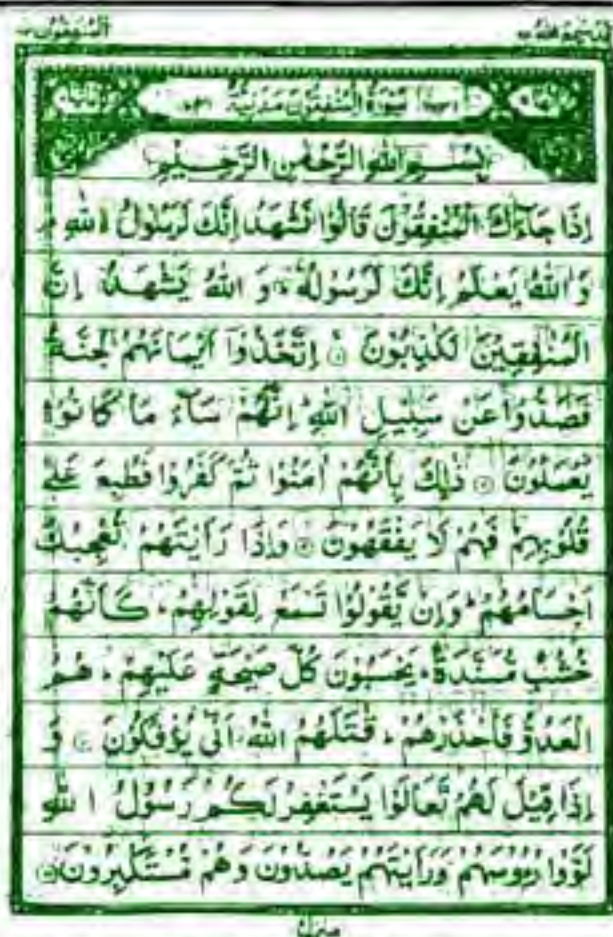 المنفقون
قد سمع الله
سورة المنفقون مدنية
بسم الله الرحمن الرحيم
اِذَا جَآءَكَ الْمُنٰفِقُوْنَ قَالُوْا نَشْهَدُ اِنَّكَ لَرَسُوْلُ اللّٰهِ م
وَ اللّٰهُ يَعْلَمُ اِنَّكَ لَرَسُوْلُهٗ ؕ وَ اللّٰهُ يَشْهَدُ اِنَّ
الْمُنٰفِقِيْنَ لَكٰذِبُوْنَ ۱ اِتَّخَذُوْۤا اَيْمَانَهُمْ جُنَّةً
فَصَدُّوْا عَنْ سَبِيْلِ اللّٰهِ ؕ اِنَّهُمْ سَآءَ مَا كَانُوْا
يَعْمَلُوْنَ ۲ ذٰلِكَ بِاَنَّهُمْ اٰمَنُوْا ثُمَّ كَفَرُوْا فَطُبِعَ عَلٰى
قُلُوْبِهِمْ فَهُمْ لَا يَفْقَهُوْنَ ۳ وَاِذَا رَاَيْتَهُمْ تُعْجِبُكَ
اَجْسَامُهُمْ ؕ وَاِنْ يَّقُوْلُوْا تَسْمَعْ لِقَوْلِهِمْ ؕ كَاَنَّهُمْ
خُشُبٌ مُّسَنَّدَةٌ ؕ يَحْسَبُوْنَ كُلَّ صَيْحَةٍ عَلَيْهِمْ ؕ هُمُ
الْعَدُوُّ فَاحْذَرْهُمْ ؕ قٰتَلَهُمُ اللّٰهُ ؗ اَنّٰى يُؤْفَكُوْنَ ۴ وَ
اِذَا قِيْلَ لَهُمْ تَعَالَوْا يَسْتَغْفِرْ لَكُمْ رَسُوْلُ اللّٰهِ
لَوَّوْا رُءُوْسَهُمْ وَرَاَيْتَهُمْ يَصُدُّوْنَ وَهُمْ مُّسْتَكْبِرُوْنَ ۵
منزل